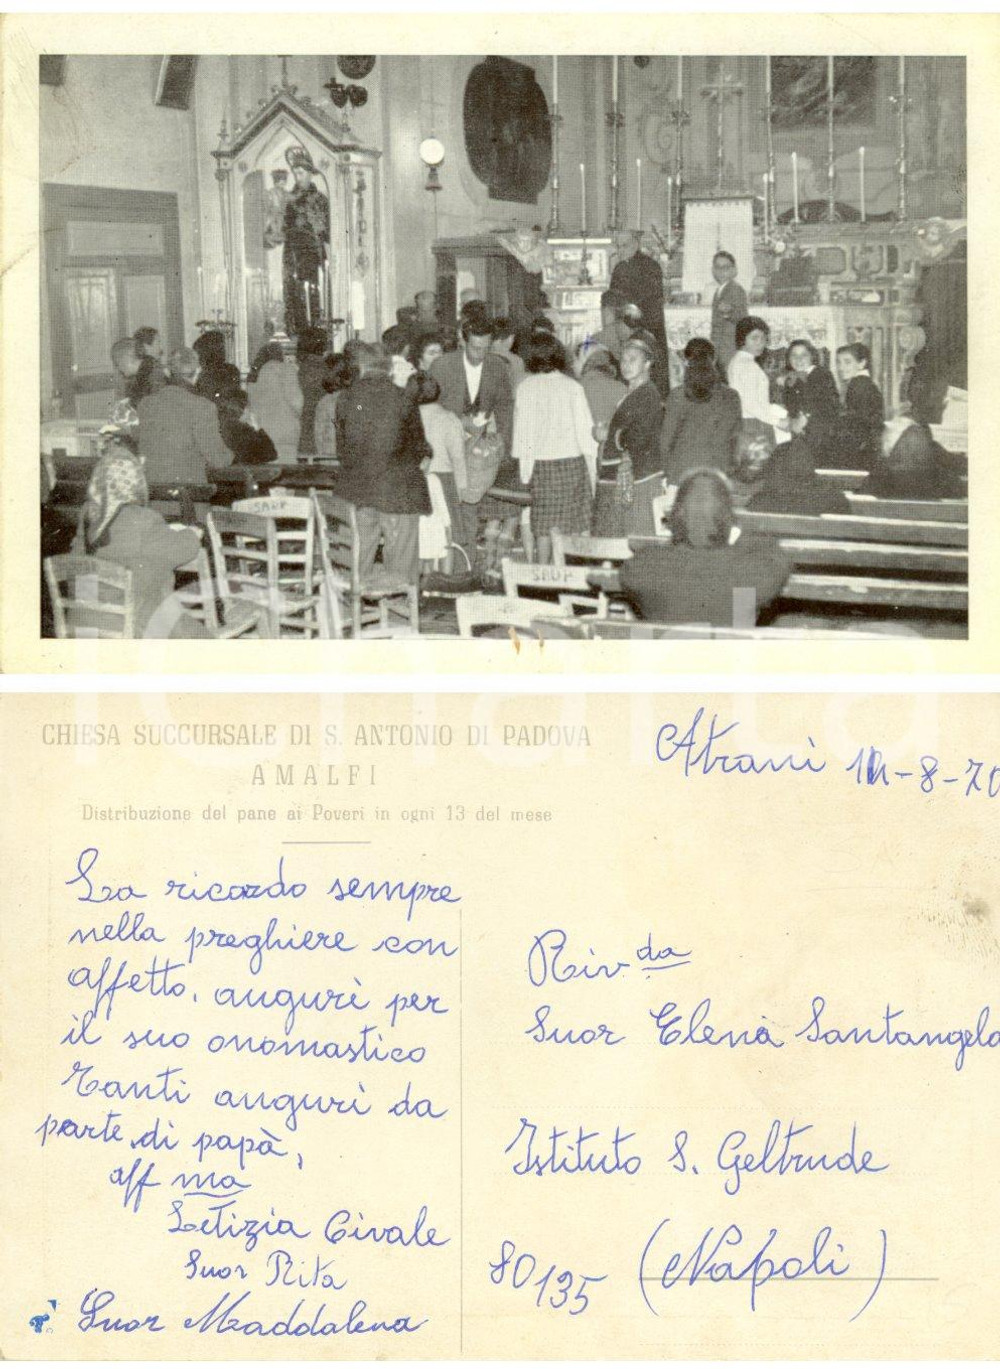 CHIESA SUCCURSALE DI S. ANTONIO DI PADOVA
AMALFI
Distribuzione del pane ai Poveri in ogni 13 del mese
Atrani 1 -8-70
La ricordo sempre
nella preghiere con
affetto, augurì per
il suo onomastico
Tanti augurì da
parte di papà,
aff ma
Letizia Civale
Suor Rita
Suor Maddalena
Riv. da
Suor Elena Santangelo
Istituto S. Geltrude
80135 (Napoli)